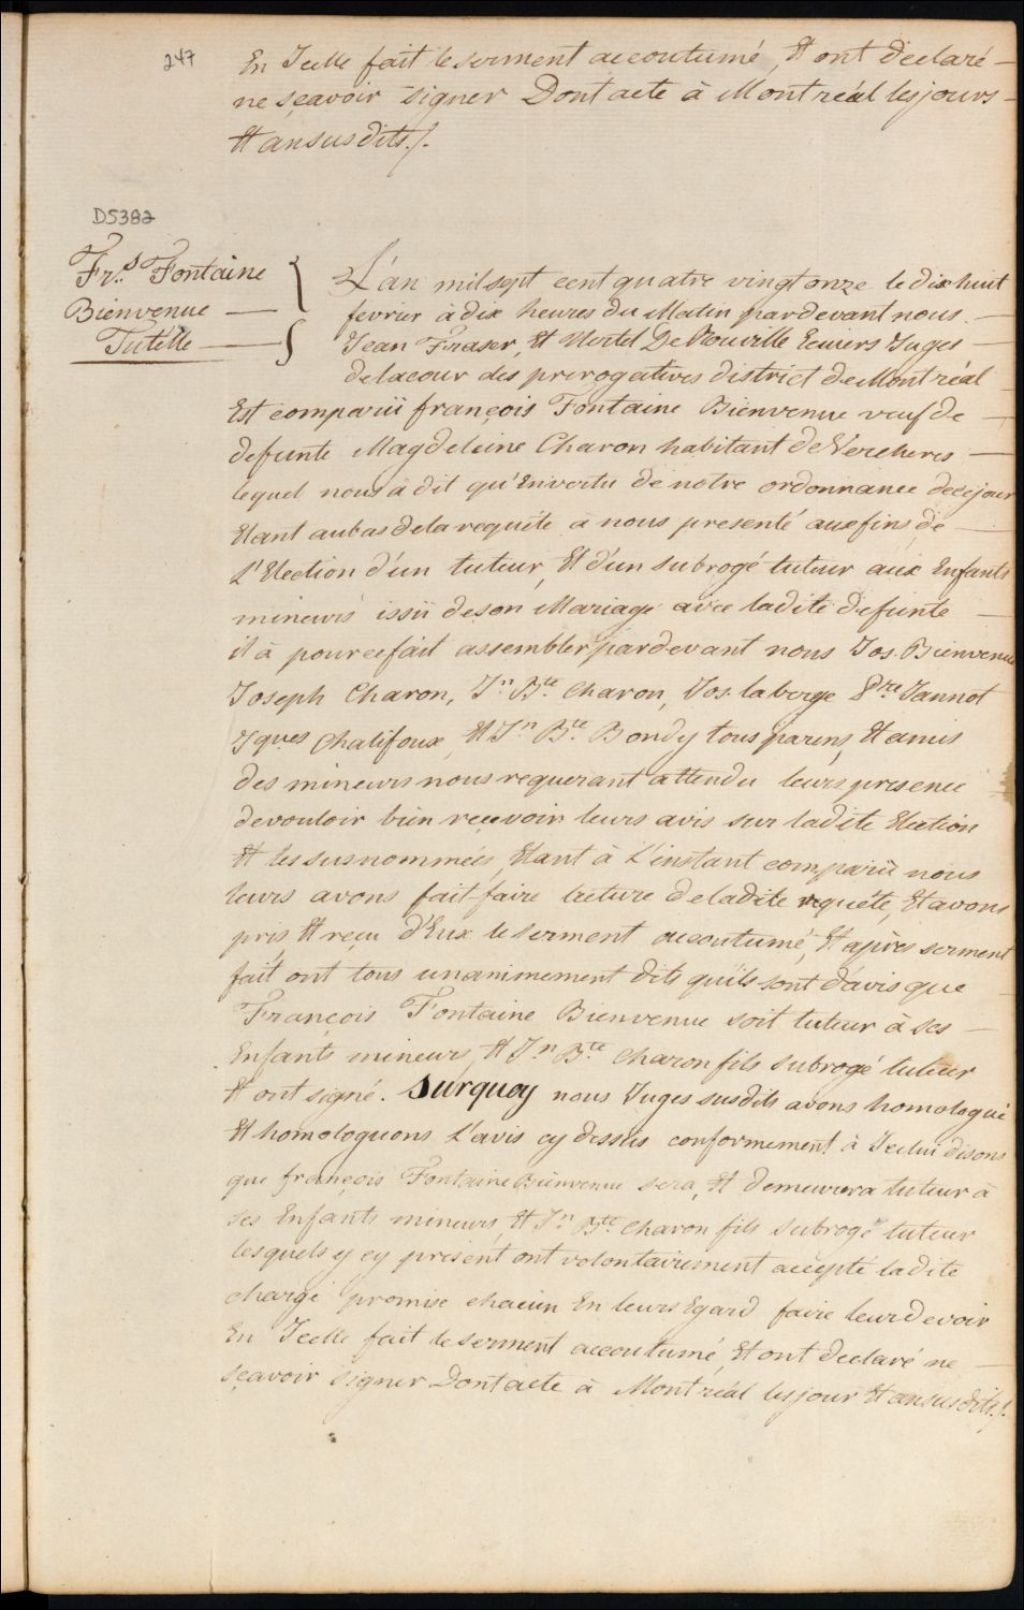 247
En Icelle fait le serment accoutumé, Et ont declaré
ne sçavoir signer Dont acte à Montréal les jours
Et an susdits./.
D5382
Frs. Fontaine
Bienvenue
Tutelle
L'an mil sept cent quatre vingt onze le dix huit
fevrier à dix heures du Matin pardevant nous
Jean Fraser, Et Hertel De Rouville Ecuiers Juges
de la cour des prerogatives district de Montréal
Est comparüe françois Fontaine Bienvenue veuf de
defunte Magdeleine Charon habitant de Vercheres
lequel nous a dit qu'En vertu de notre ordonnance de ce jour
Etant au bas de la requête à nous presenté aux fins de
L'Election d'un tuteur, Et d'un subrogé tuteur aux Enfants
mineurs issü de son Mariage avec ladite defunte
il à pour ce fait assembler pardevant nous Jos. Bienvenue
Joseph Charon, Jn. Bte. Charon, Jos. laberge Pre Jannot
Jques Chalifoux, Et Jn. Bte. Bondy tous parens, Et amis
des mineurs nous requerant attendu leurs presence
de vouloir bien recevoir leurs avis sur ladite Election
Et les susnommées, Etant à L'instant comparü nous
leurs avons fait faire lecture de ladite requête, Et avons
pris Et reçu d'Eux le serment accoutumé, Et après serment
fait ont tous unanimement dits qu'ils sont d'avis que
François Fontaine Bienvenue soit tuteur à ses
Enfants mineurs, Et Jn. Bte. Charon fils subrogé tuteur
Et ont signé. Surquoy nous Juges susdits avons homologué
Et homologuons L'avis cy dessus conformement à Icelui disons
que françois Fontaine Bienvenue sera, Et demeurera tuteur à
ses Enfants mineurs, Et Jn. Bte. Charon fils subrogé tuteur
lesquels y cy present ont volontairement accepté ladite
charge promise chacun En leurs Egard faire leur devoir
En Icelle fait le serment accoutumé, Et ont declaré ne
sçavoir signer Dont acte à Montréal les jour Et an susdits./.